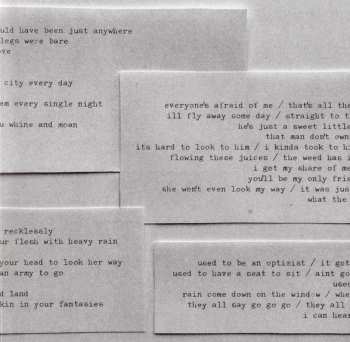 uld have been just anywhere
legs were bare
ove
city every day
em every single night
u whine and moan
everyone's afraid of me / that's all the
ill fly away some day / straight to t
he's just a sweet little
that man don't own
its hard to look to him / i kinda took to hi
flowing these juices / the weed has i
i get my share of me
you'll be my only frie
she won't even look my way / it was jus
what the
recklessly
ur flesh with heavy rain
your head to look her way
an army to go
d land
kin in your fantasies
used to be an optimist / it got
used to have a seat to sit / aint go
used
rain come down on the window / whe
they all say go go go / they all
i can hear